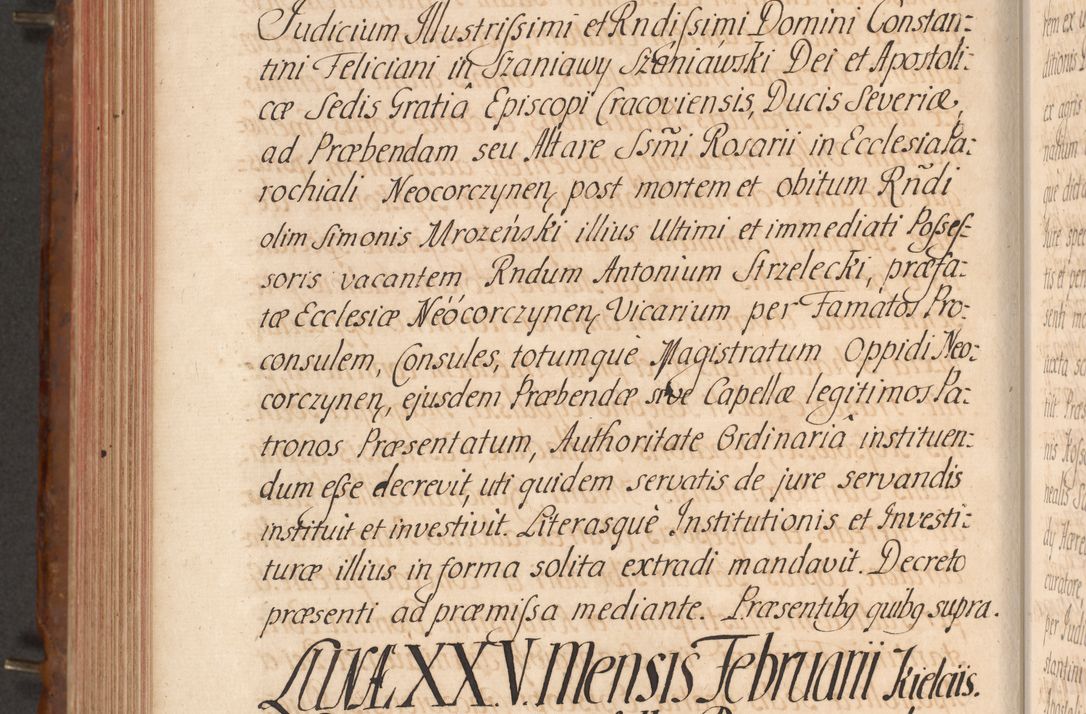 Judicium Illustrissimi et Rndissimi Domini Constan:
tini Feliciani in Szaniawy Szaniawski Dei et Apostoli:
cæ Sedis Gratiâ Episcopi Cracoviensis, Ducis Severiæ,
ad Præbendam seu Altare Ssm̃i Rosarii in Ecclesia Pa:
rochiali Neocorczynen, post mortem et obitum Rñdi
olim Simonis Mrozeński illius Ultimi et immediati Posses:
soris vacantem Rndum Antonium Strzelecki, præfa:
tæ Ecclesiæ Néócorczynen, Vicarium per Famatos Pro:
consulem, Consules, totumquè Magistratum Oppidi Neo:
corczynen, ejusdem Præbendæ sive Capellæ legitimos Pa:
tronos Præsentatum, Authoritate Ordinariâ instituen:
dum esse decrevit, uti quidem servatis de jure servandis
instituit et investivit. Literasquè Institutionis et Investi:
turæ illius in forma solita extradi mandavit. Decreto
præsenti ad præmissa mediante. Præsentibq quibq supra.
LUNÆ XX.V. Mensis Februarii Kielciis.